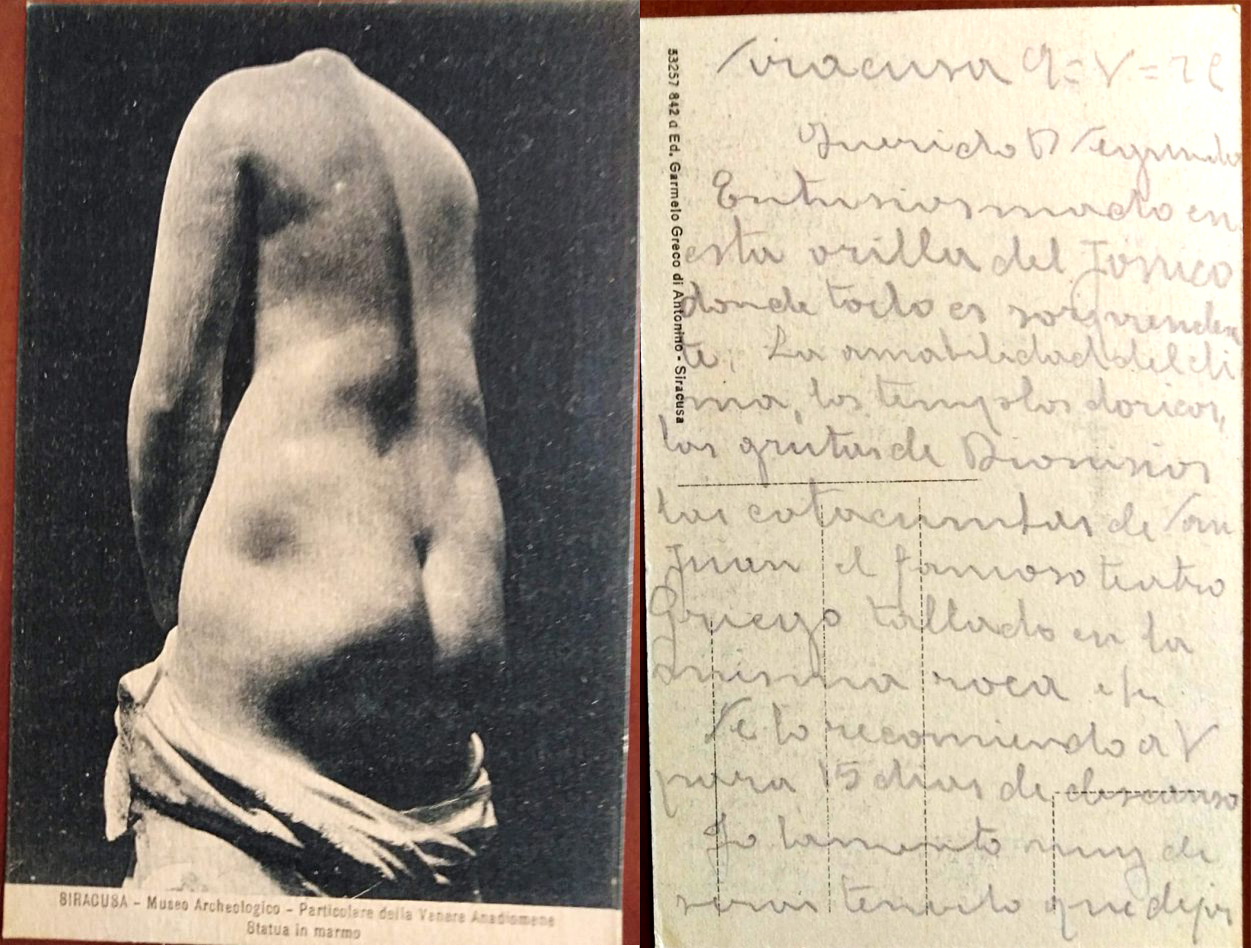 SIRACUSA - Museo Archeologico - Particolare della Venere Anadiomene
Statua in marmo
53257 842 d Ed. Garmelo Greco di Antonino - Siracusa
Siracusa 9=V=
Querido D Segundo
Entusiasmado en
esta orilla del Jonico
donde todo es sorprenden
te. La amabilidad del cli
ma, los templos doricos,
las grutas de Dionisios
las catacumbas de San
Juan el famoso teatro
Griego tallado en la
misma roca
Se lo recomiendo a V
para 15 dias de descanso
Yo lamento muy de
veras tenerlo que dejar